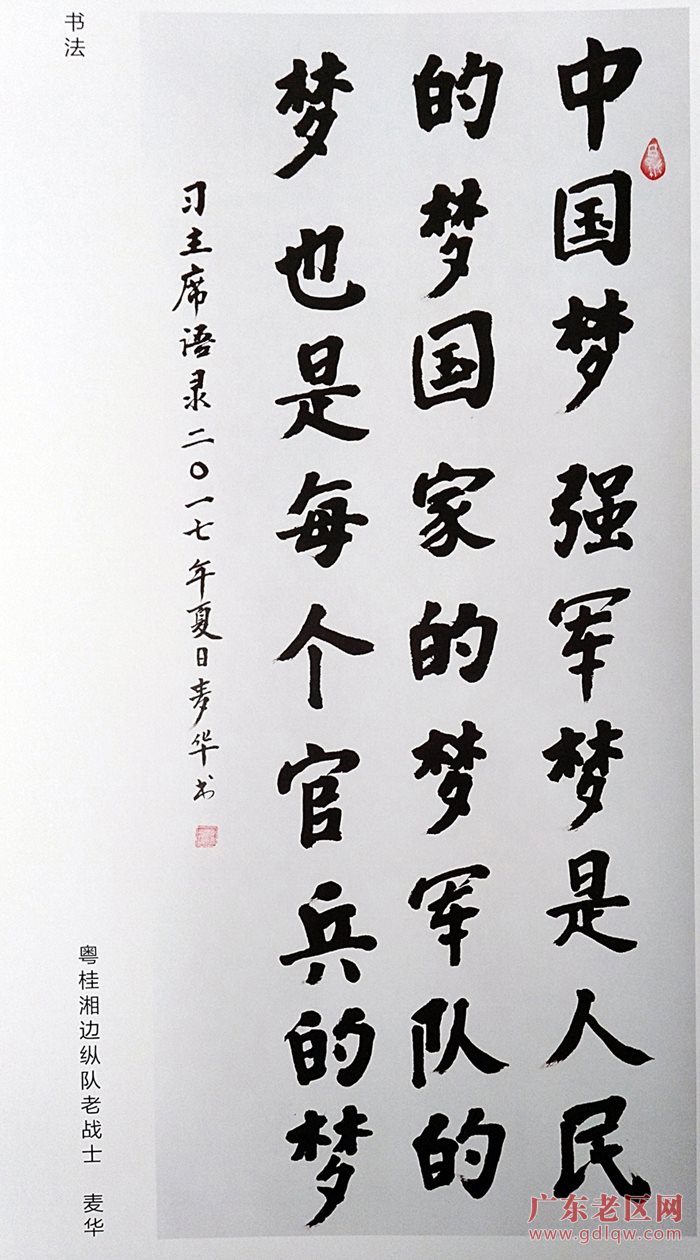 书法
中国梦强军梦是人民
的梦国家的梦军队的
梦也是每个官兵的梦
习主席语录二〇一七年夏日麦华书
粤桂湘边纵队老战士 麦华
广东老区网
www.gdlqw.com